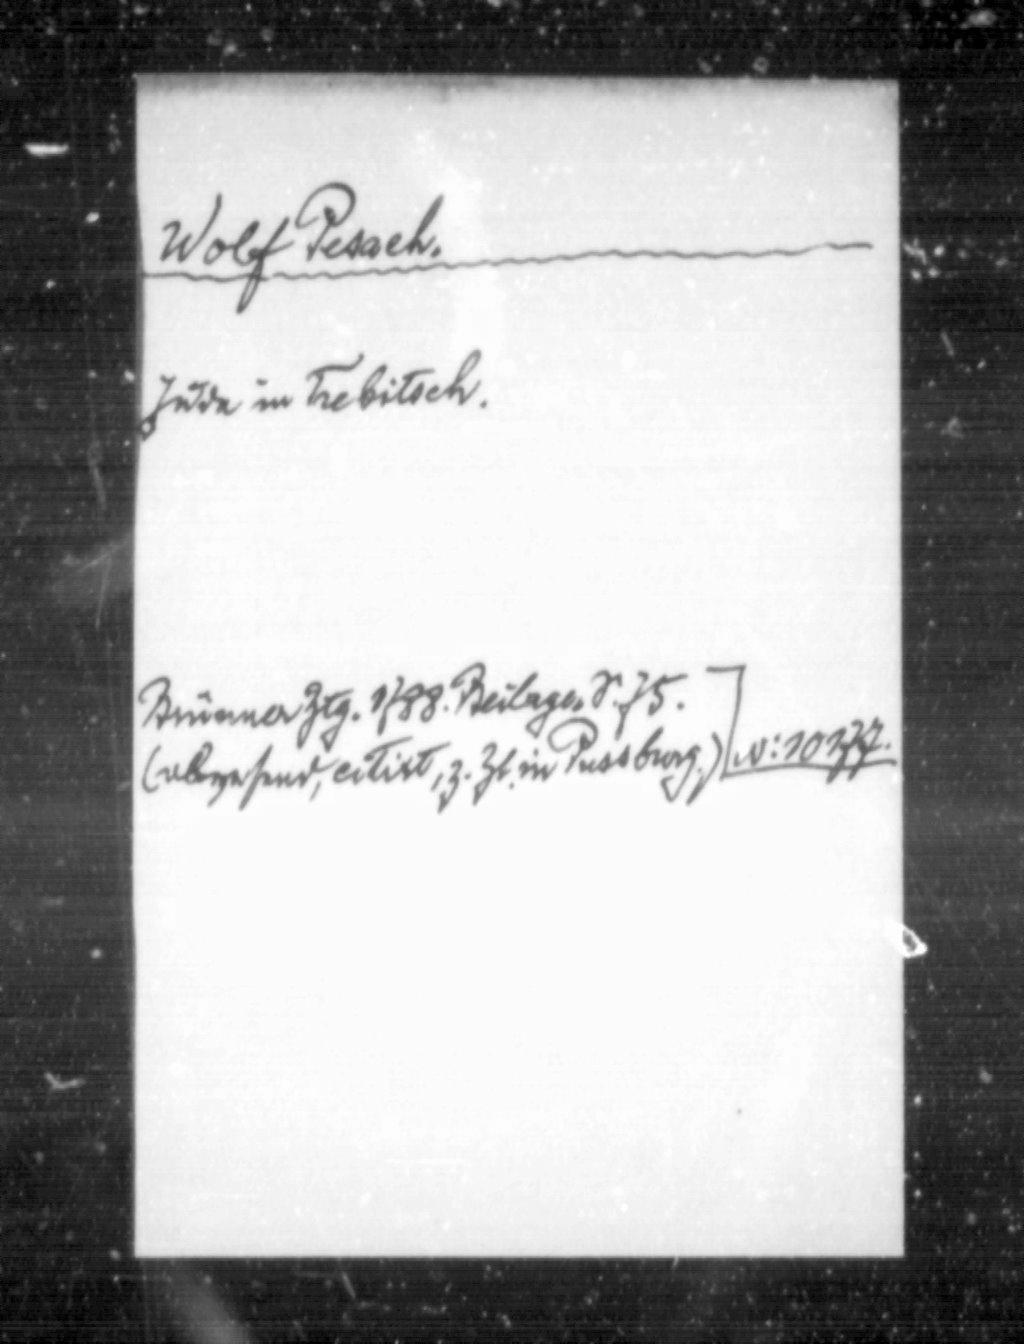 Wolf Pesach.
Jude in Trebitsch.
Brünner Ztg. 1788. Beilage. S. 75.
(abwesend, citirt, z. Zt. in Pressburg.) N: 10177.